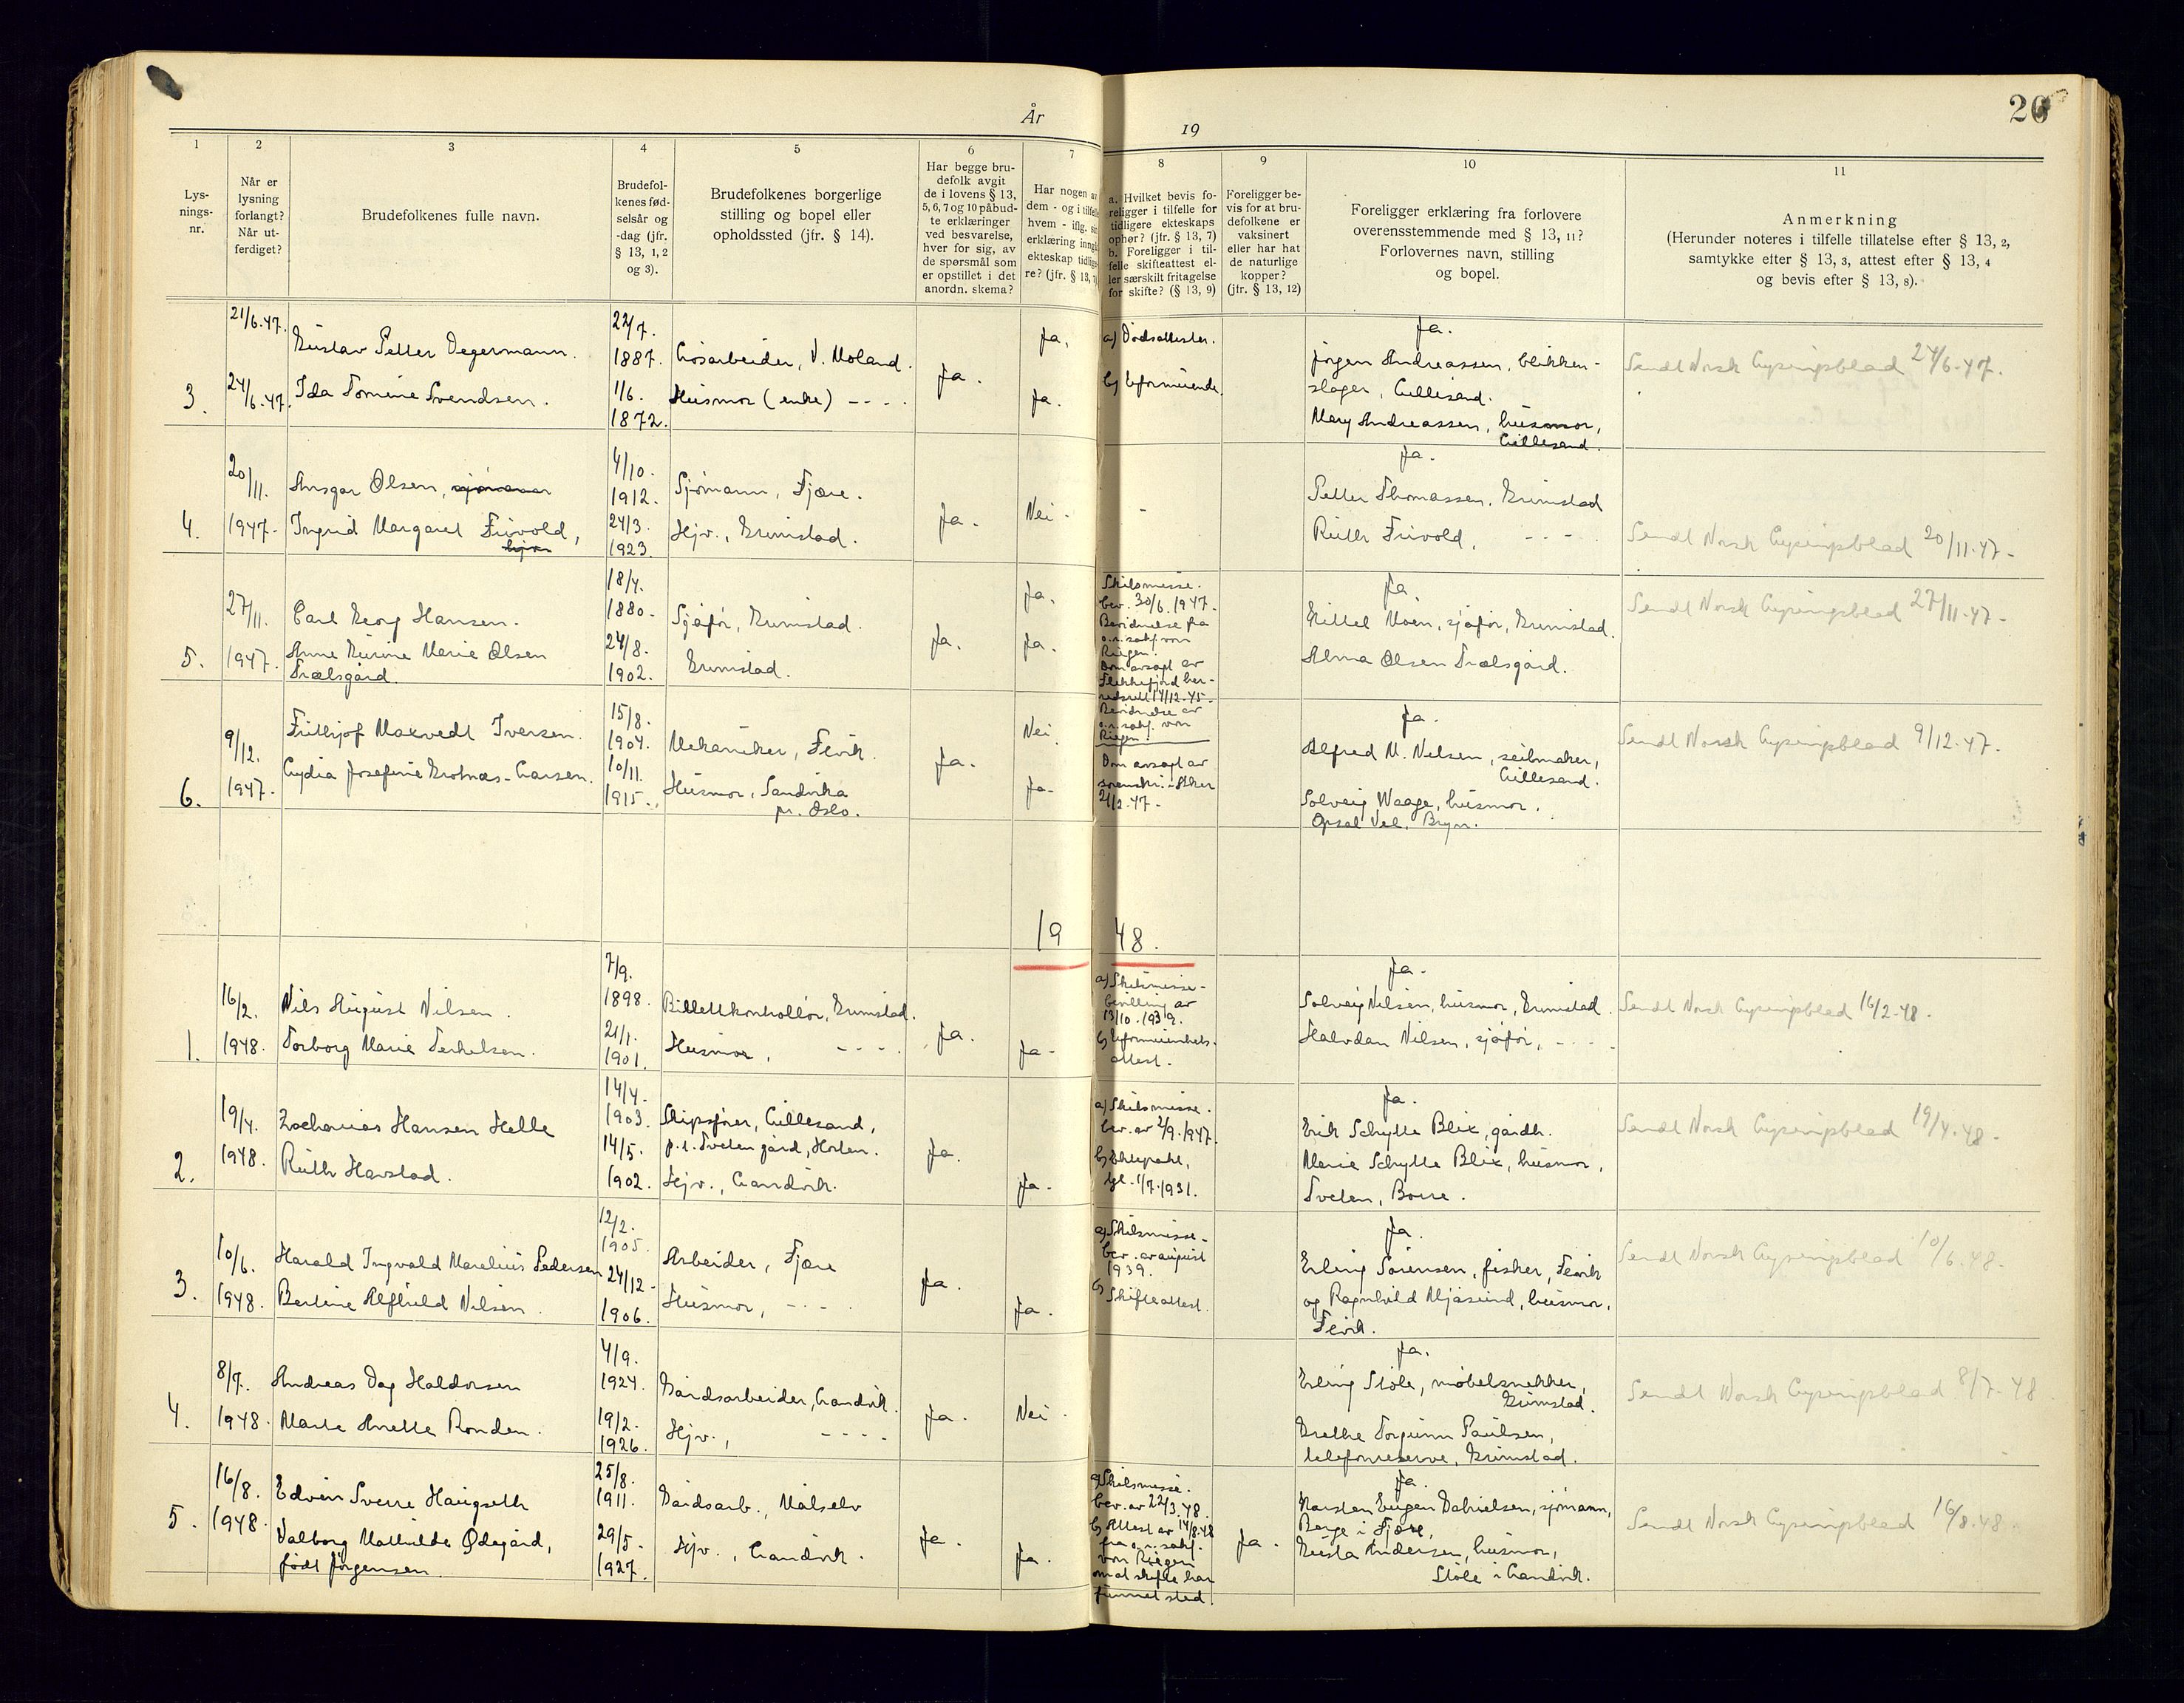 År
19
26
1
2
3
4
5
6
7
8
9
10
11
Lys-
nings-
nr.
Når er
lysning
forlangt?
Når ut-
ferdiget?
Brudefolkenes fulle navn.
Brudefol-
kenes fød-
selsår og
-dag (jfr.
§ 13, 1, 2
og 3).
Brudefolkenes borgerlige
stilling og bopel eller
opholdssted (jfr. § 14).
Har begge bru-
defolk avgit
de i lovens § 13,
5, 6, 7 og 10 påbud-
te erklæringer
ved besvarelse,
hver for sig, av
de spørsmål som
er opstillet i det
anordn. skema?
Har nogen av
dem - og i tilfelle
hvem - iflg. sin
erklæring inngå
ekteskap tidlige-
re? (jfr. § 13, 7)
a. Hvilket bevis fo-
religger i tilfelle for
tidligere ekteskaps
ophør? (jfr. § 13, 7)
b. Foreligger i til-
felle skifteattest el-
ler særskilt fritagelse
for skifte? (§ 13, 9)
Foreligger be-
vis for at bru-
defolkene er
vaksinert
eller har hat
de naturlige
kopper?
(jfr. § 13, 12)
Foreligger erklæring fra forlovere
overensstemmende med § 13, 11?
Forlovernes navn, stilling
og bopel.
Anmerkning
(Herunder noteres i tilfelle tillatelse efter § 13, 2,
samtykke efter § 13, 3, attest efter § 13, 4
og bevis efter § 13, 8).
3.
21/6.47.
24/6.47.
Gustav Petter Degermann.
Ida Tomine Svendsen.
22/7.
1887.
1/6.
1872.
Losarbeider, V. Moland.
Husmor (enke) - - - .
Ja.
Ja.
Ja.
a) Dødsattester.
b) Uformuende.
Ja.
Jørgen Andreassen, blikken-
slager, Lillesand.
Mary Andreassen, husmor,
Lillesand.
Sendt Norsk Lysingsblad 24/6-47.
4.
20/11.
1947-
Ansgar Olsen, sjømann
Ingrid Margaret Frivold,
hjv.
4/10.
1912.
24/3.
1923.
Sjømann, Fjære.
Hjv., Grimstad.
Ja.
Nei.
-
Ja.
Petter Thomassen, Grimstad
Ruth Frivold, - - - .
Sendt Norsk Lysingsblad 20/11-47-
5.
27/11.
1947.
Carl Georg Hansen.
Anne Gurine Marie Olsen
Trælsgård.
18/4.
1880.
24/8.
1902.
Sjåfør, Grimstad.
Grimstad.
Ja.
Ja.
Ja.
Skilsmisse.
bev. 30/6.1947.
Bevidnelse fra
o.r.sakf. von
Riegen.
Dom avsagt av
Flekkefjord her-
redsrett 14/12-45-
Bevidnelse av
o.r.sakf. von
Riegen.
Ja.
Kittel Moen, sjåfør, Grimstad.
Alma Olsen Trælsgård.
Sendt Norsk Lysingsblad 27/11-47-
6.
9/12.
1947-
Frithjof Maxvedt Iversen.
Lydia Josefine Grotnæs-Larsen.
15/8.
1904.
10/11.
1915.
Mekaniker, Fevik.
Husmor, Sandvika
pr. Oslo.
Ja.
Nei.
Ja-
Dom avsagt av
sorenskr. i Aker
21/2-47-
Ja.
Alfred M. Nilsen, seilmaker,
Lillesand.
Solveig Waage, husmor,
Opsal Vel. Bryn.
Sendt Norsk Lysingsblad 9/12-47.
19 48.
1.
16/2.
1948.
Nils August Nilsen.
Torborg Marie Terkelsen.
7/9.
1898.
21/1.
1901.
Billettkontrollør, Grimstad.
Husmor, - - - .
Ja.
Ja-
a) Skilsmisse-
bevilling av
13/10.1939.
b) Uformuenhets-
attest.
Ja.
Solveig Nilsen, husmor, Grimstad.
Halvdan Nilsen, sjåfør, - - - .
Sendt Norsk Lysingsblad 16/2-48.
2.
19/4.
1948.
Zacharias Hansen Helle
Ruth Havstad.
14/4.
1903.
14/5.
1902.
Skipsfører, Lillesand,
p.t. Tveten gård, Horten.
Hjv., Landvik.
Ja.
Ja.
a) Skilsmisse.
bev. av 2/9.1947.
b) Ektepakt,
tgl. 1/7.1931.
Ja.
Erik Schytte Blix, gårdb.
Marie Schytte Blix, husmor,
Tveten, Borre.
Sendt Norsk Lysingsblad 19/4.48-
3.
10/6.
1948.
Harald Ingvald Marelius Pedersen
Bertine Alfhild Nilsen.
12/2.
1905.
24/12-
1906.
Arbeider, Fjære
Husmor, - - - .
Ja.
Ja.
a) Skilsmisse-
bev. av august
1939.
b) Skifteattest.
Ja.
Erling Sørensen, fisker, Fevik
og Ragnhild Mjåsund, husmor,
Fevik.
Sendt Norsk Lysingsblad 10/6.48.
4.
8/7.
1948.
Andreas Dag Haldorsen
Marte Anette Ronden.
4/9.
1924.
19/2.
1926.
Gårdsarbeider, Landvik.
Hjv., - - - -
Ja.
Nei.
Ja.
Erling Støle, møbelsnekker,
Grimstad.
Grethe Torgunn Paulsen,
telefonreserve, Grimstad.
Sendt Norsk Lysingsblad 8/7-48.
5.
16/8.
1948.
Edvin Sverre Haugseth
Valborg Mathilde Ødegård,
født Jørgensen.
25/8.
1911.
29/5-
1927.
Gårdsarb., Målselv
Hjv., Landvik.
Ja.
Ja.
a) Skilsmisse.
bev. av 22/3.48.
b) Attest av 14/8.48
fra o.r.sakf.
von Riegen
om at skifte har
funnet sted.
Ja.
Ja.
Karsten Eugen Gabrielsen, sjømann,
Berge i Fjære,
Gusta Andersen, husmor,
Støle i Landvik.
Sendt Norsk Lysingsblad 16/8.48.